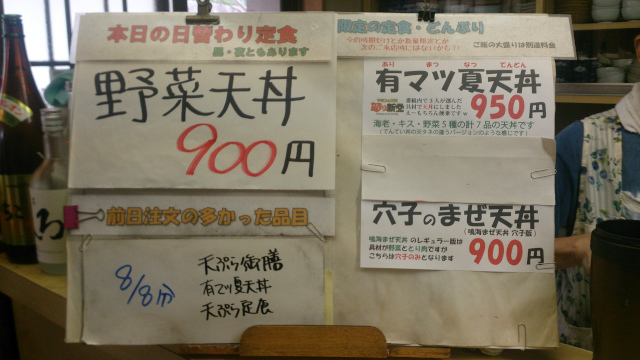 本日の日替わり定食
昼・夜ともあります
野菜天丼
900円
前日注文の多かった品目
8/8分
天ぷら御膳
有マツ夏天丼
天ぷら定食
限定の定食・どんぶり
ご飯の大盛りは別途料金
あり まつ なつ てんどん
有マツ夏天丼
950円
海老・キス・野菜5種の計7品の天丼です
穴子のまぜ天丼
(鳴海まぜ天丼 穴子版)
鳴海まぜ天丼 のレギュラー版は
具材が野菜ととり肉ですが
こちらは穴子のみとなります
900円